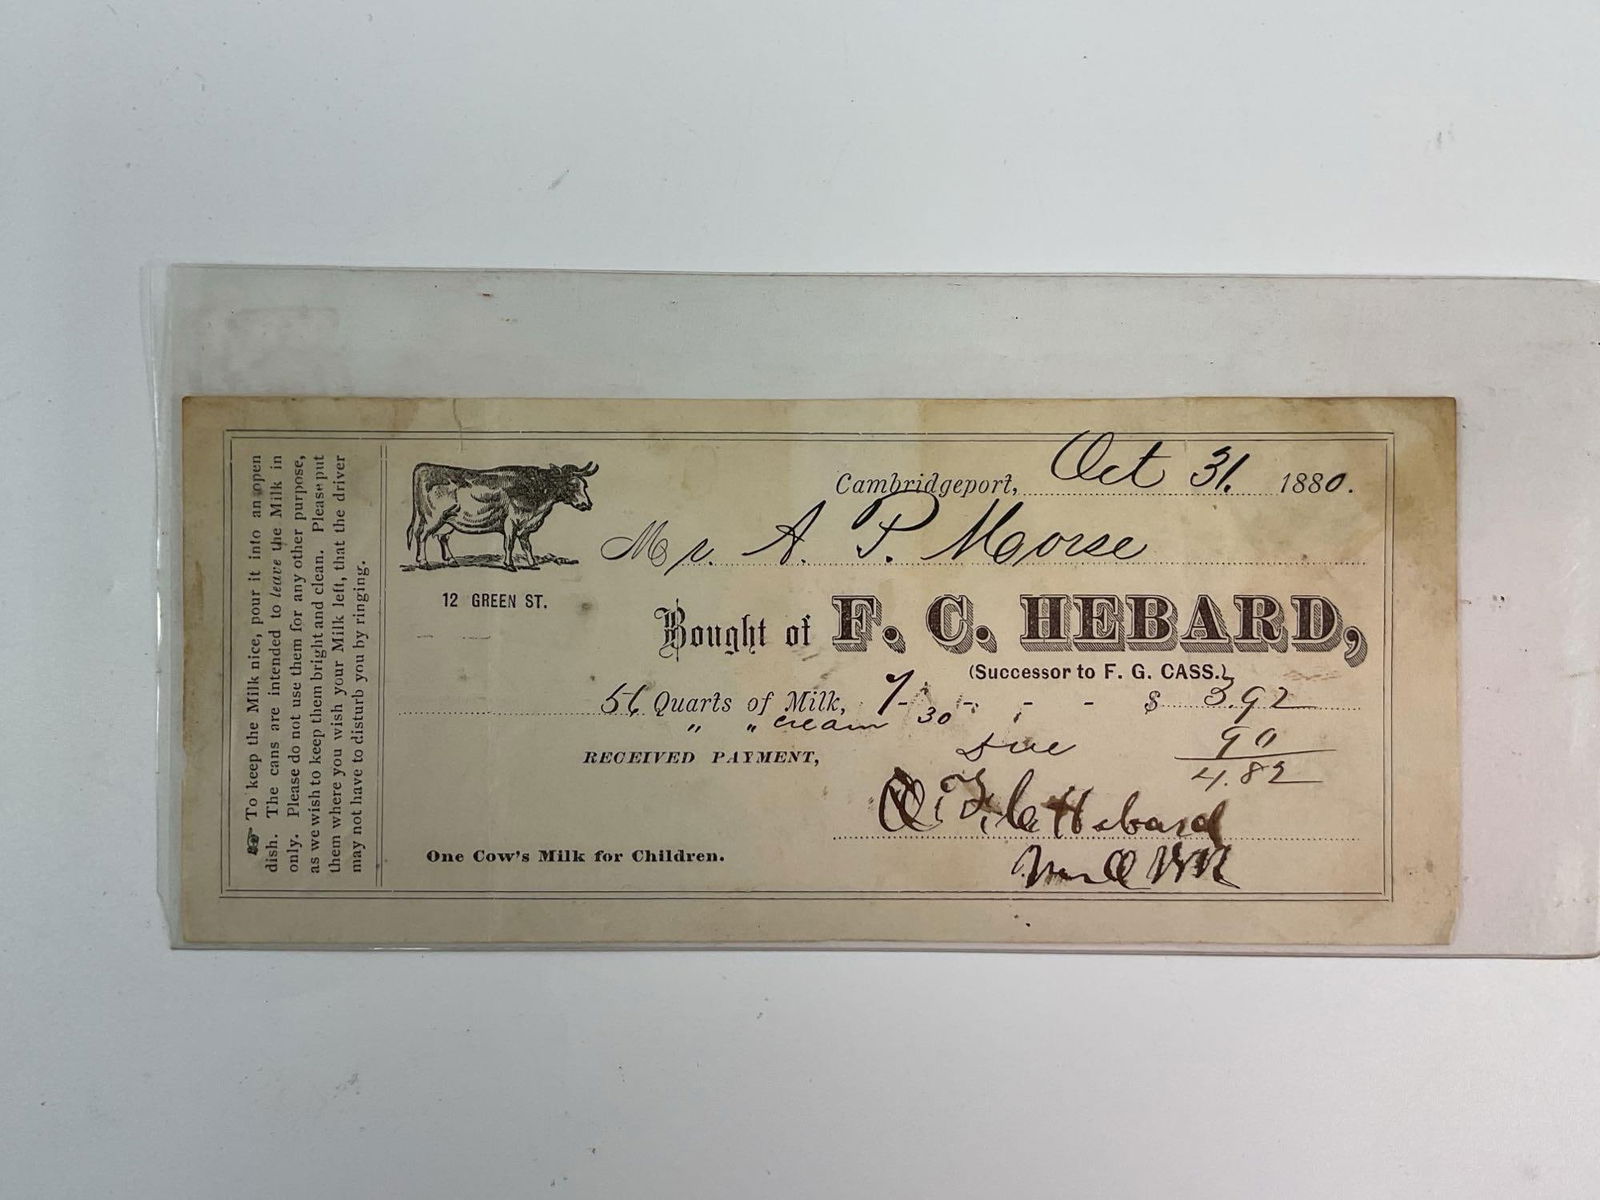 Cambridgeport, Oct 31. 1880.
Mr. A. P. Morse
12 GREEN ST.
Bought of F. C. HEBARD,
(Successor to F. G. CASS.)
56 Quarts of Milk, 7 - - - - $ 3.92
" " cream 30
Due 90
RECEIVED PAYMENT, 4.82
F. C. Hebard
One Cow's Milk for Children.
To keep the Milk nice, pour it into an open
dish. The cans are intended to leave the Milk in
only. Please do not use them for any other purpose,
as we wish to keep them bright and clean. Please put
them where you wish your Milk left, that the driver
may not have to disturb you by ringing.